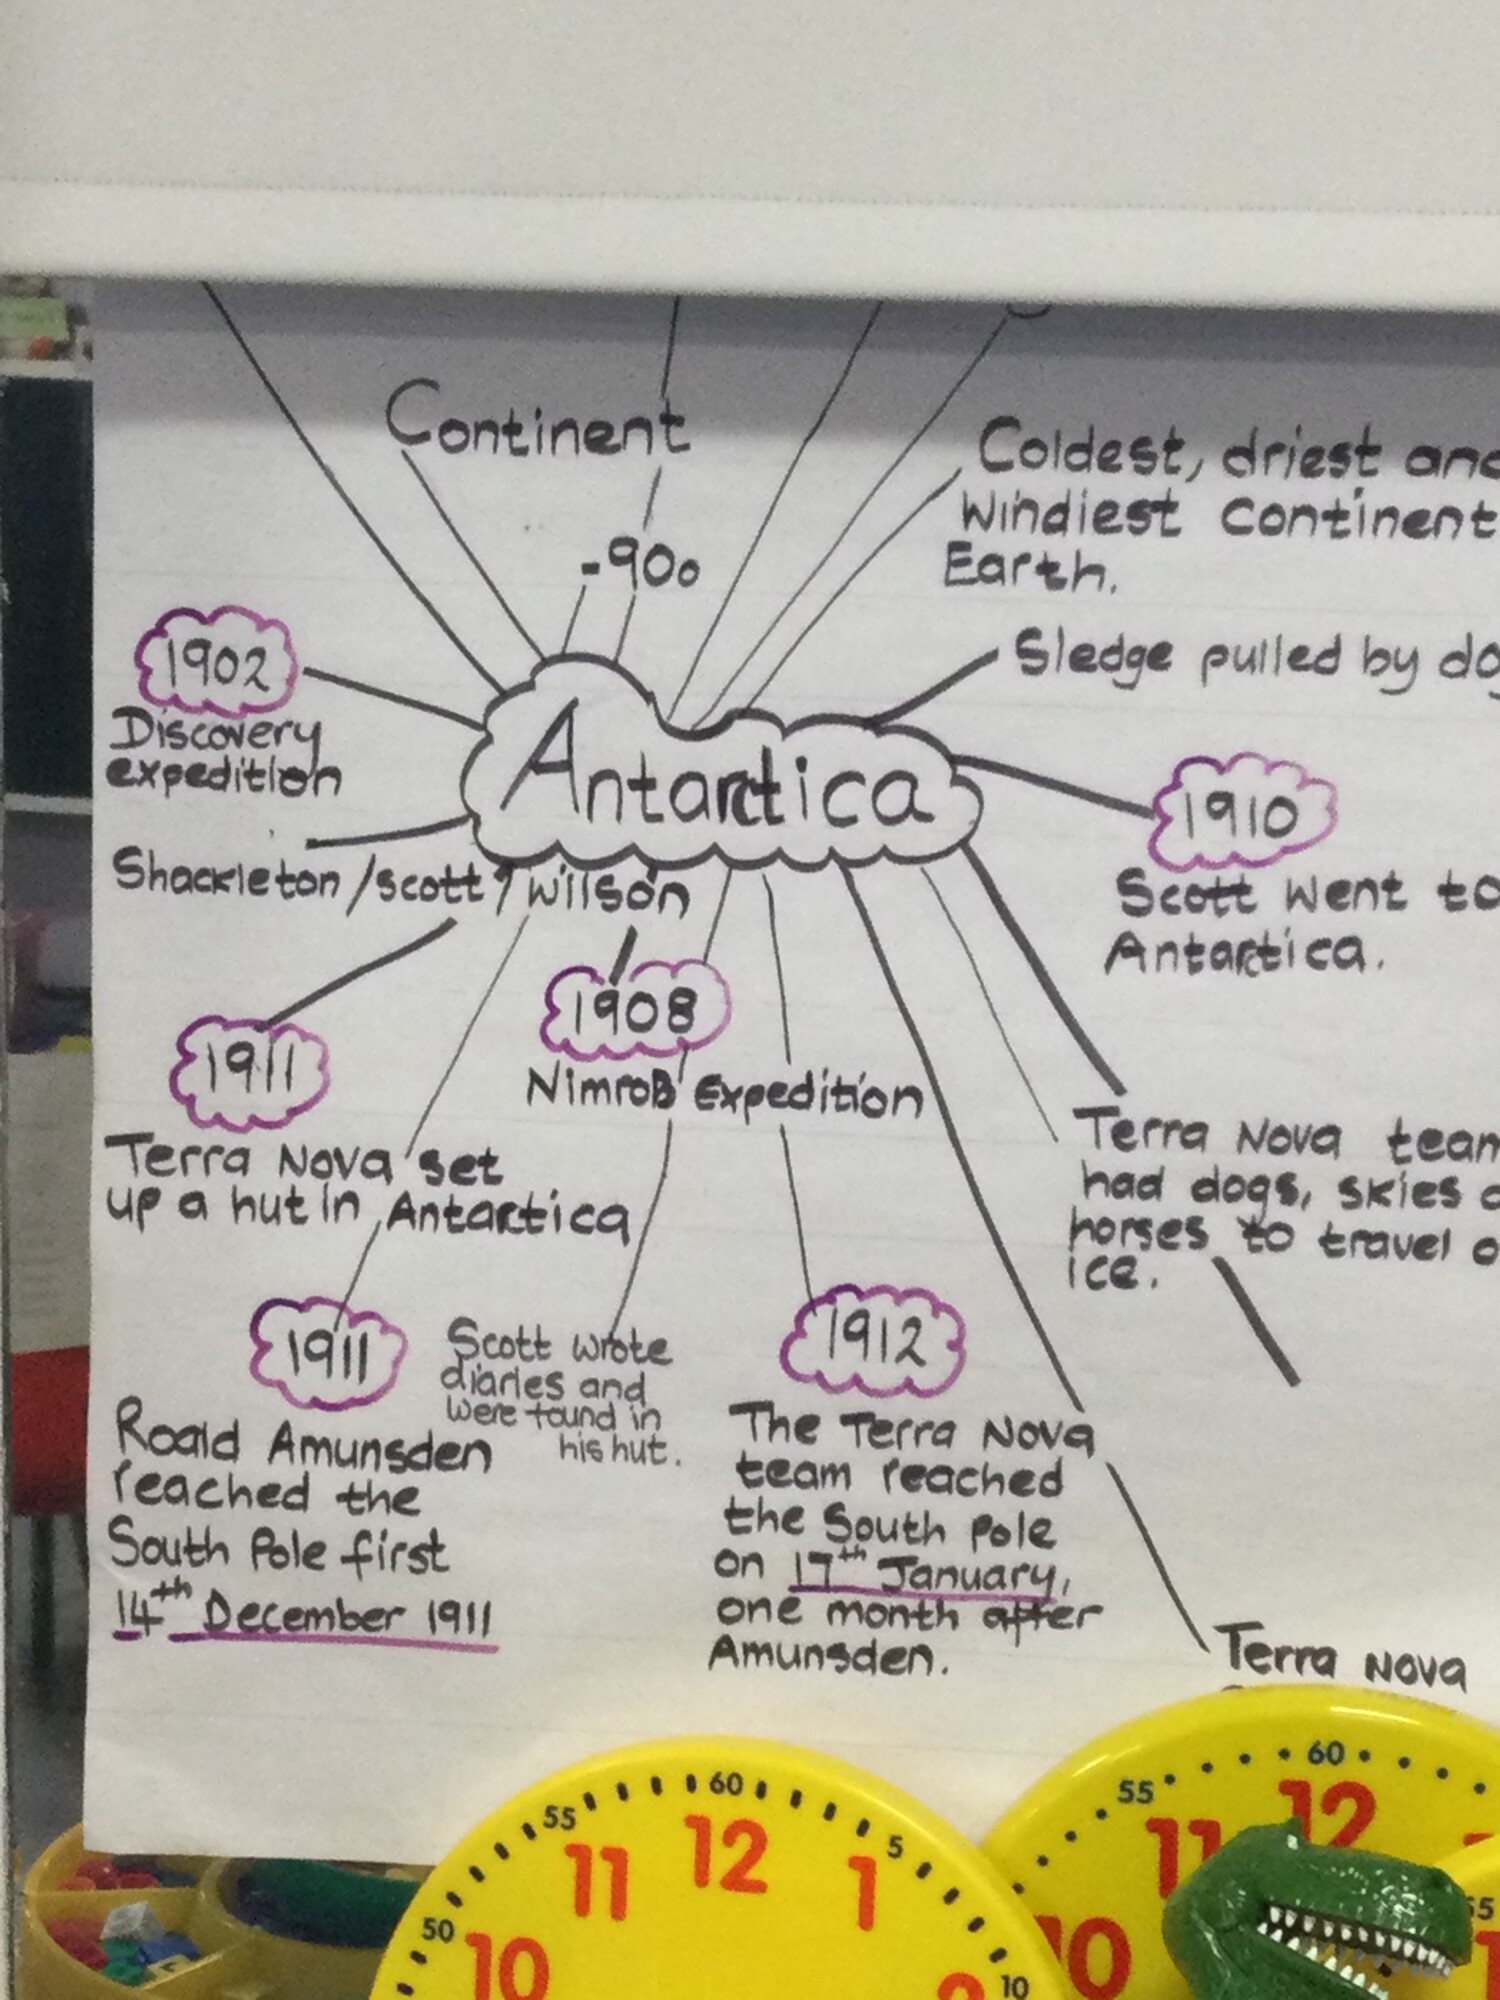 Continent
-90o
Coldest, driest and
Windiest Continent
Earth.
Sledge pulled by
1902
Discovery
expedition
Antarctica
1910
Scott went to
Antarctica.
Shackleton/scott/wilson
1908
Nimrod Expedition
1911
Terra Nova set
up a hut in Antarctica
Terra Nova team
had dogs, skies
horses to travel
ice.
1911
Roald Amunsden
reached the
South Pole first
14th December 1911
Scott wrote
diaries and
were found in
his hut.
1912
The Terra Nova
team reached
the South Pole
on 17th January,
one month after
Amunsden.
Terra Nova
60
55
5
50
10
11
12
1
10
60
55
11
12
10